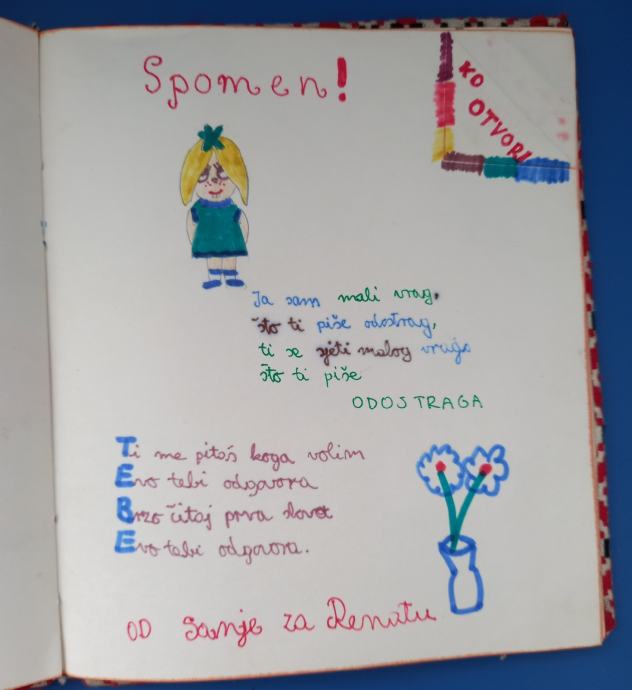 Spomen!
KO
OTVORI
Ja sam mali vrag,
što ti piše odostrag,
ti se sjeti malog vraga
što ti piše
ODOSTRAGA
Ti me pitaš koga volim
Evo tebi odgovora
Brzo čitaj prva slova
Evo tebi odgovora.
OD Sanje za Renatu